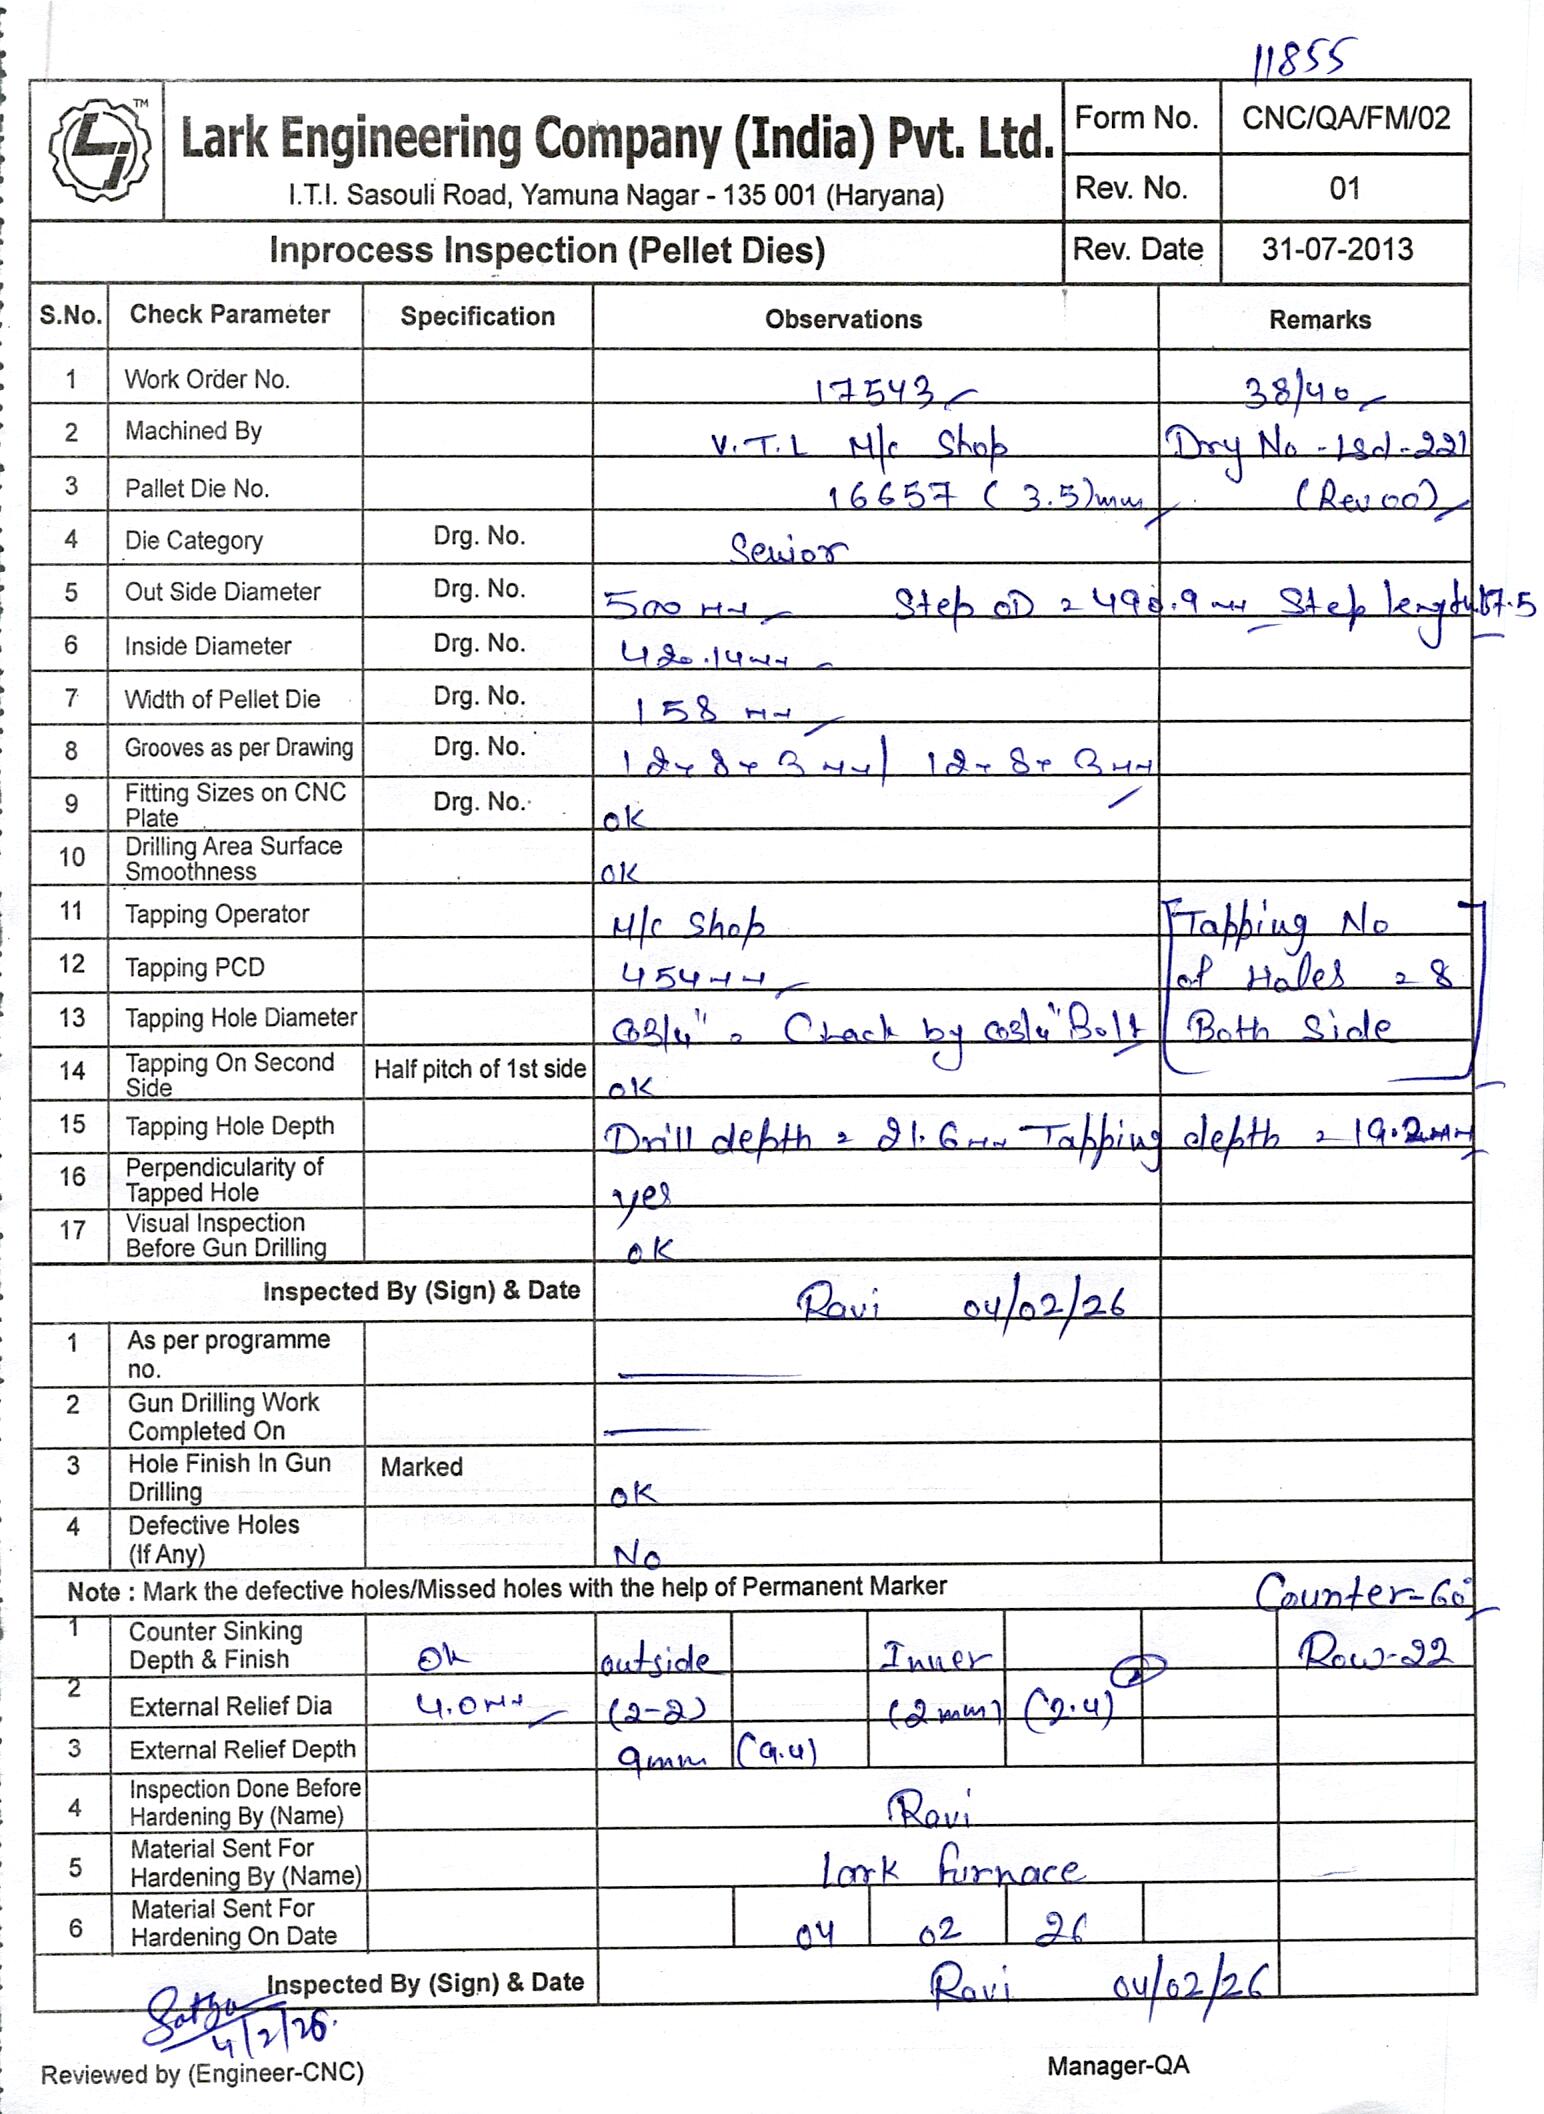 11855
LJ TM
Lark Engineering Company (India) Pvt. Ltd.
I.T.I. Sasouli Road, Yamuna Nagar - 135 001 (Haryana)
Form No. CNC/QA/FM/02
Rev. No. 01
Inprocess Inspection (Pellet Dies) Rev. Date 31-07-2013
S.No. Check Parameter Specification Observations Remarks
1 Work Order No. 17543 38/40
2 Machined By V.T.L M/c Shop Drg No - Lsd-221
3 Pallet Die No. 16657 (3.5)mm (Rev 00)
4 Die Category Drg. No. Senior
5 Out Side Diameter Drg. No. 500 mm Step OD = 498.9 mm Step length 17.5
6 Inside Diameter Drg. No. 420.14 mm
7 Width of Pellet Die Drg. No. 158 mm
8 Grooves as per Drawing Drg. No. 12 x 8 x 3 mm / 12 x 8 x 3 mm
9 Fitting Sizes on CNC Plate Drg. No. OK
10 Drilling Area Surface Smoothness OK
11 Tapping Operator M/c Shop Tapping No
12 Tapping PCD 454 mm of Holes = 8
13 Tapping Hole Diameter 3/4" = Check by 3/4" Bolt Both Side
14 Tapping On Second Side Half pitch of 1st side OK
15 Tapping Hole Depth Drill depth = 21.6 mm Tapping depth = 19.2 mm
16 Perpendicularity of Tapped Hole yes
17 Visual Inspection Before Gun Drilling OK
Inspected By (Sign) & Date Ravi 04/02/26
1 As per programme no.
2 Gun Drilling Work Completed On
3 Hole Finish In Gun Drilling Marked OK
4 Defective Holes (If Any) No
Note : Mark the defective holes/Missed holes with the help of Permanent Marker Counter-60°
1 Counter Sinking Depth & Finish Ok outside Inner Row-22
2 External Relief Dia 4.0 mm (2-2) (2 mm) (2.4)
3 External Relief Depth 9mm (9.4)
4 Inspection Done Before Hardening By (Name) Ravi
5 Material Sent For Hardening By (Name) Lark furnace
6 Material Sent For Hardening On Date 04 02 26
Inspected By (Sign) & Date Ravi 04/02/26
4/2/26.
Reviewed by (Engineer-CNC) Manager-QA